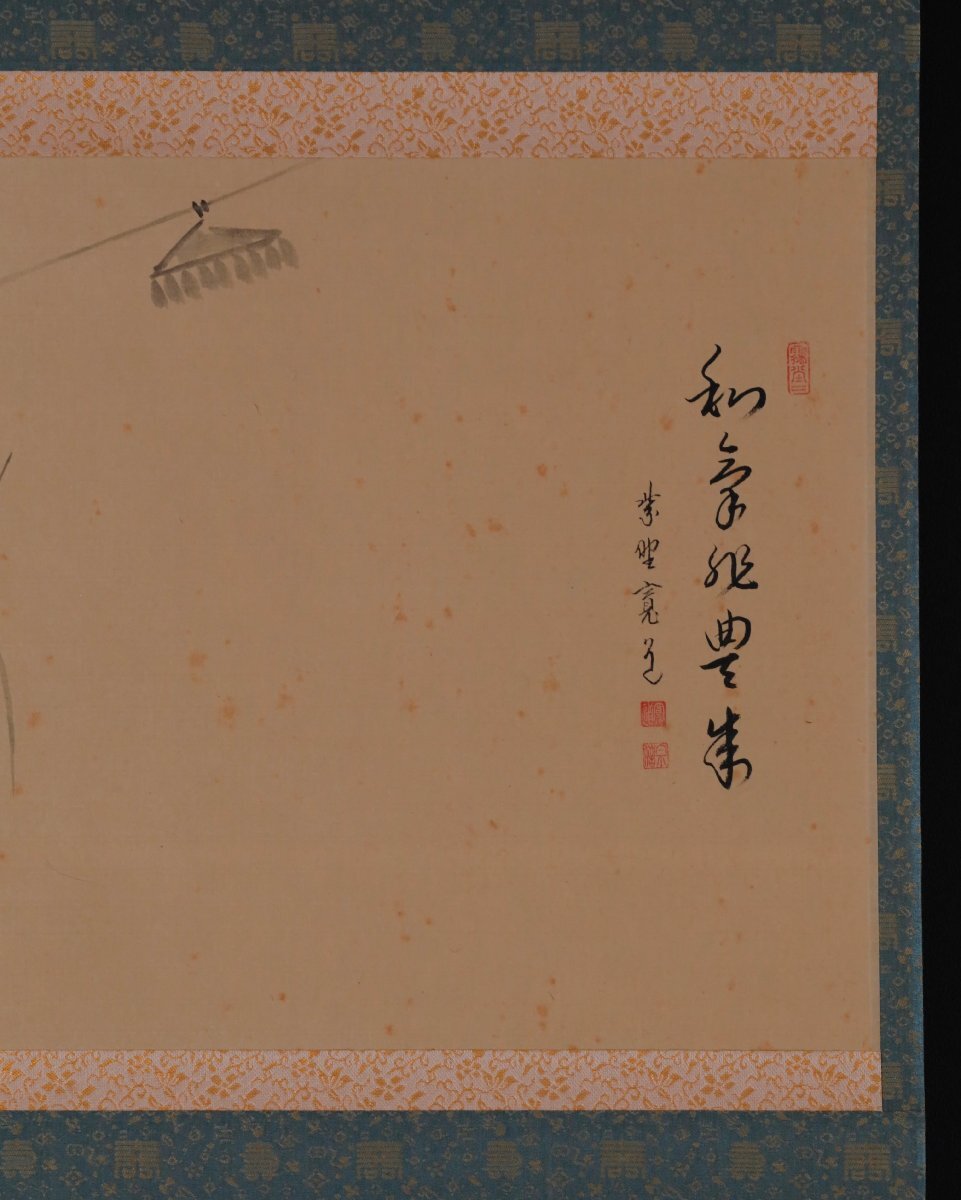 和氣兆豊年
紫野寛道